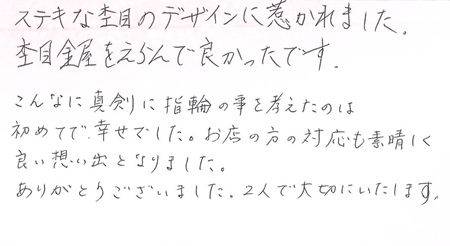 ステキな杢目のデザインに惹かれました。
杢目金屋をえらんで良かったです.
こんなに真剣に指輪の事を考えたのは
初めてで、幸せでした。お店の方の対応も素晴しく
良い想い出となりました。
ありがとうございました。2人で大切にいたします。